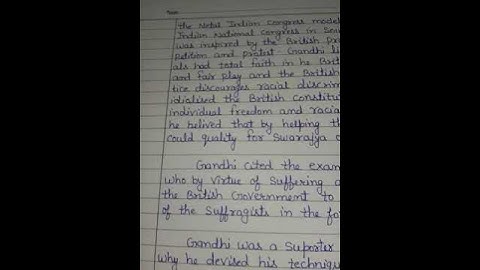 the Natal Indian Congress model
Indian National Congress in Sou
was inspired by the British Par
petition and protest. Gandhi li
als had total faith in he Brit
and fair play and the British
tice discourages racial discrim
idialised the British constitu
individual freedom and racia
he belived that by helping th
could quality for Swarajya o
Gandhi cited the exam
who by virtue of suffering a
the British Government to
of the Suffragists in the fo
Gandhi was a suporter
why he devised his techniqu